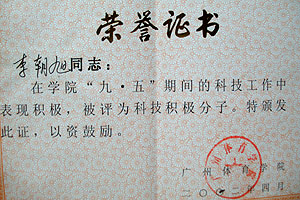 荣誉证书
李朝旭同志：
在学院“九·五”期间的科技工作中
表现积极，被评为科技积极分子。特颁发
此证，以资鼓励。
广州体育学院
二〇〇二年四月